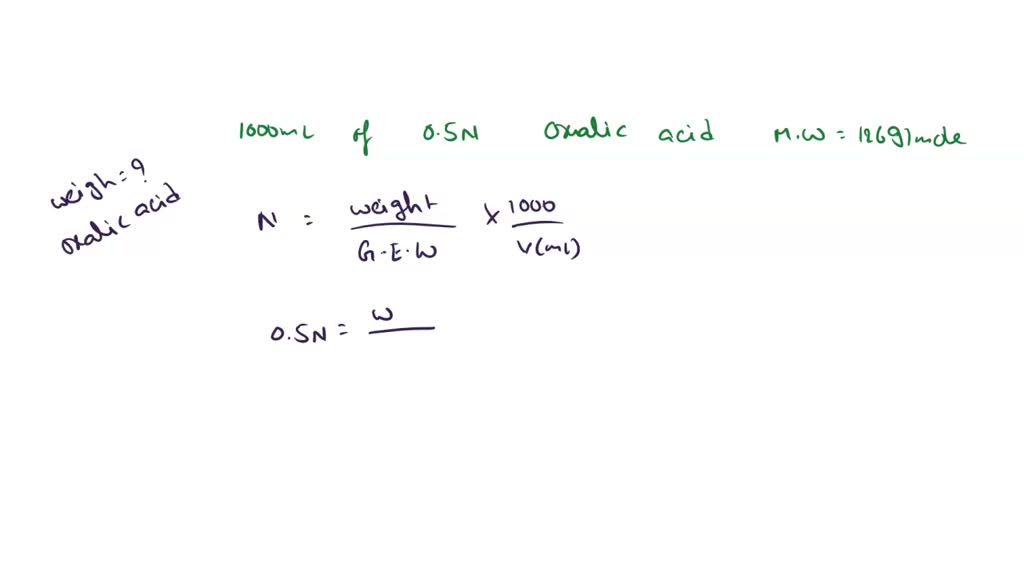 1000mL of 0.5N oxalic acid M.W = 126g/mole
weigh = ?
oxalic acid
N = weight / G.E.W × 1000 / V(mL)
0.5N = w